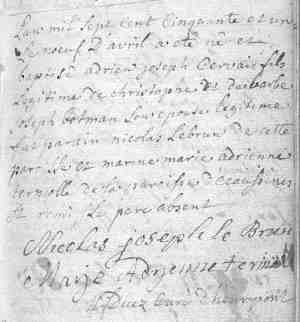 L'an mil sept cent cinquante et un
le neuf d'avril a eté né et
baptisé adrien joseph Gervais fils
legitime de christophe et de barbe
joseph botman son epouse legitime
fut parain nicolas lebrun de cette
paroisse et marine marie adrienne
de la paroisse d'ecaussines
st remi le pere absent
Nicolas joseph le Brun
Marie Adrienne
curé d'hennripont